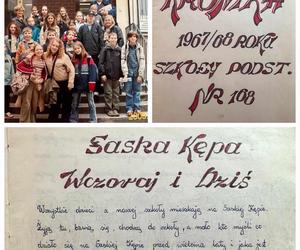 KRONIKA
1967/68 ROKU
SZKOŁY PODST.
NR 168
Saska Kępa
Wczoraj i Dziś
Wszystkie dzieci z naszej szkoły mieszkają na Saskiej Kępie.
Żyją tu, bawią się, chodzą do szkoły, a mało kto myśli co
działo się na Saskiej Kępie przed wieloma laty i jaka jest